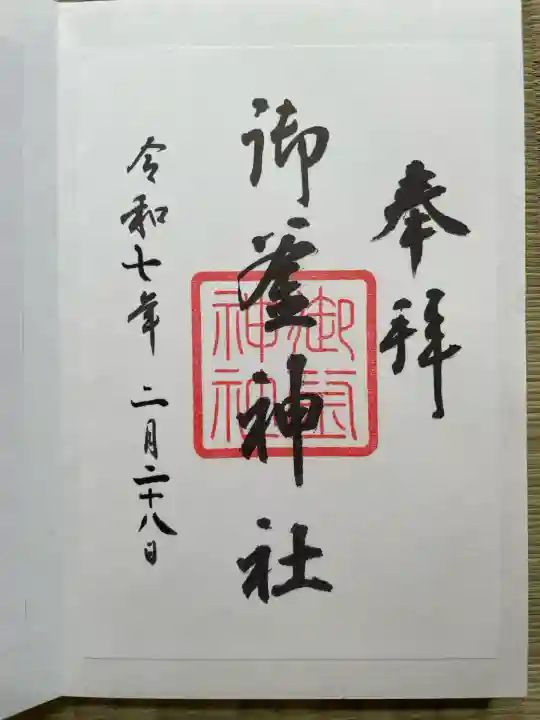 奉拝
御釜神社
御釜神社
令和七年 二月二十八日